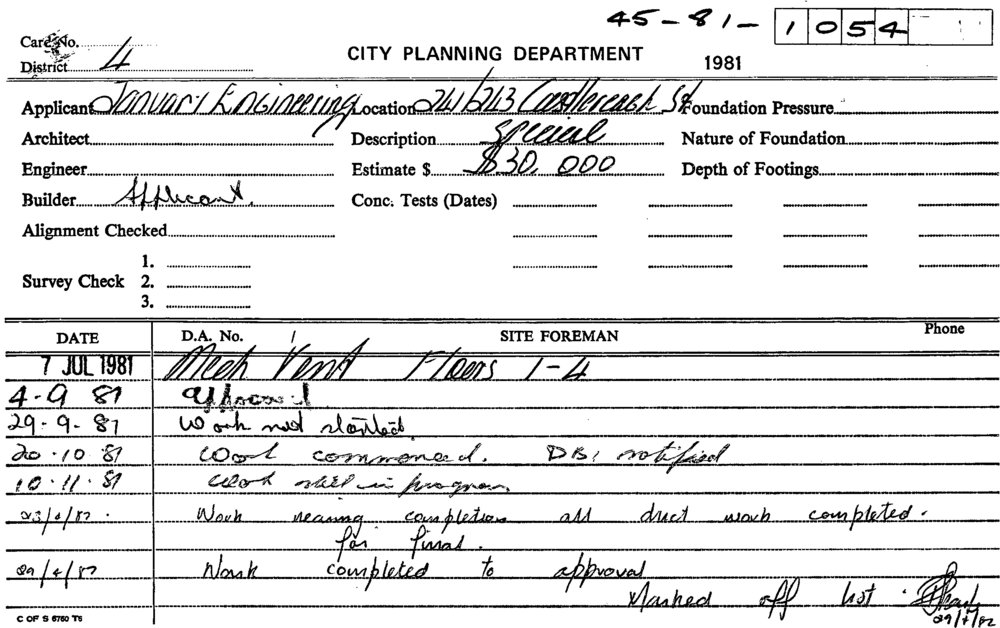 45-81-1054
Card No.
District 4
CITY PLANNING DEPARTMENT 1981
Applicant Januari Engineering Location 241/243 Castlereagh St Foundation Pressure
Architect Description Special Nature of Foundation
Engineer Estimate $ $30,000 Depth of Footings
Builder Applicant. Conc. Tests (Dates)
Alignment Checked
1.
Survey Check 2.
3.
DATE D.A. No. SITE FOREMAN Phone
7 JUL 1981 Mech Vent Floors 1-4
4-9 81 approved
29-9-81 Work not started
20.10.81 Work commenced. DBI notified
10.11.81 Work still in progress
23/4/82. Work nearing completion all duct work completed.
for final.
29/4/82 Work completed to approval
Marked off list.
29/4/82
C OF S 6760 T5